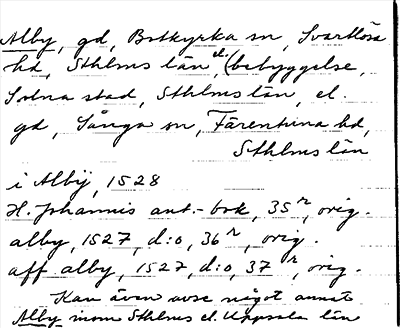 Alby, gd, Botkyrka sn, Svartlösa
hd, Sthlms län el. (bebyggelse,
Solna stad, Sthlms län, el.
gd, Sånga sn, Färentuna hd,
Sthlms län
i Albÿ, 1528
H. Johannis ant.-bok, 35r, orig.
alby, 1527, d:o, 36r, orig.
aff alby, 1527, d:o, 37r, orig.
Kan även avse något annat
Alby inom Sthlms el. Uppsala län